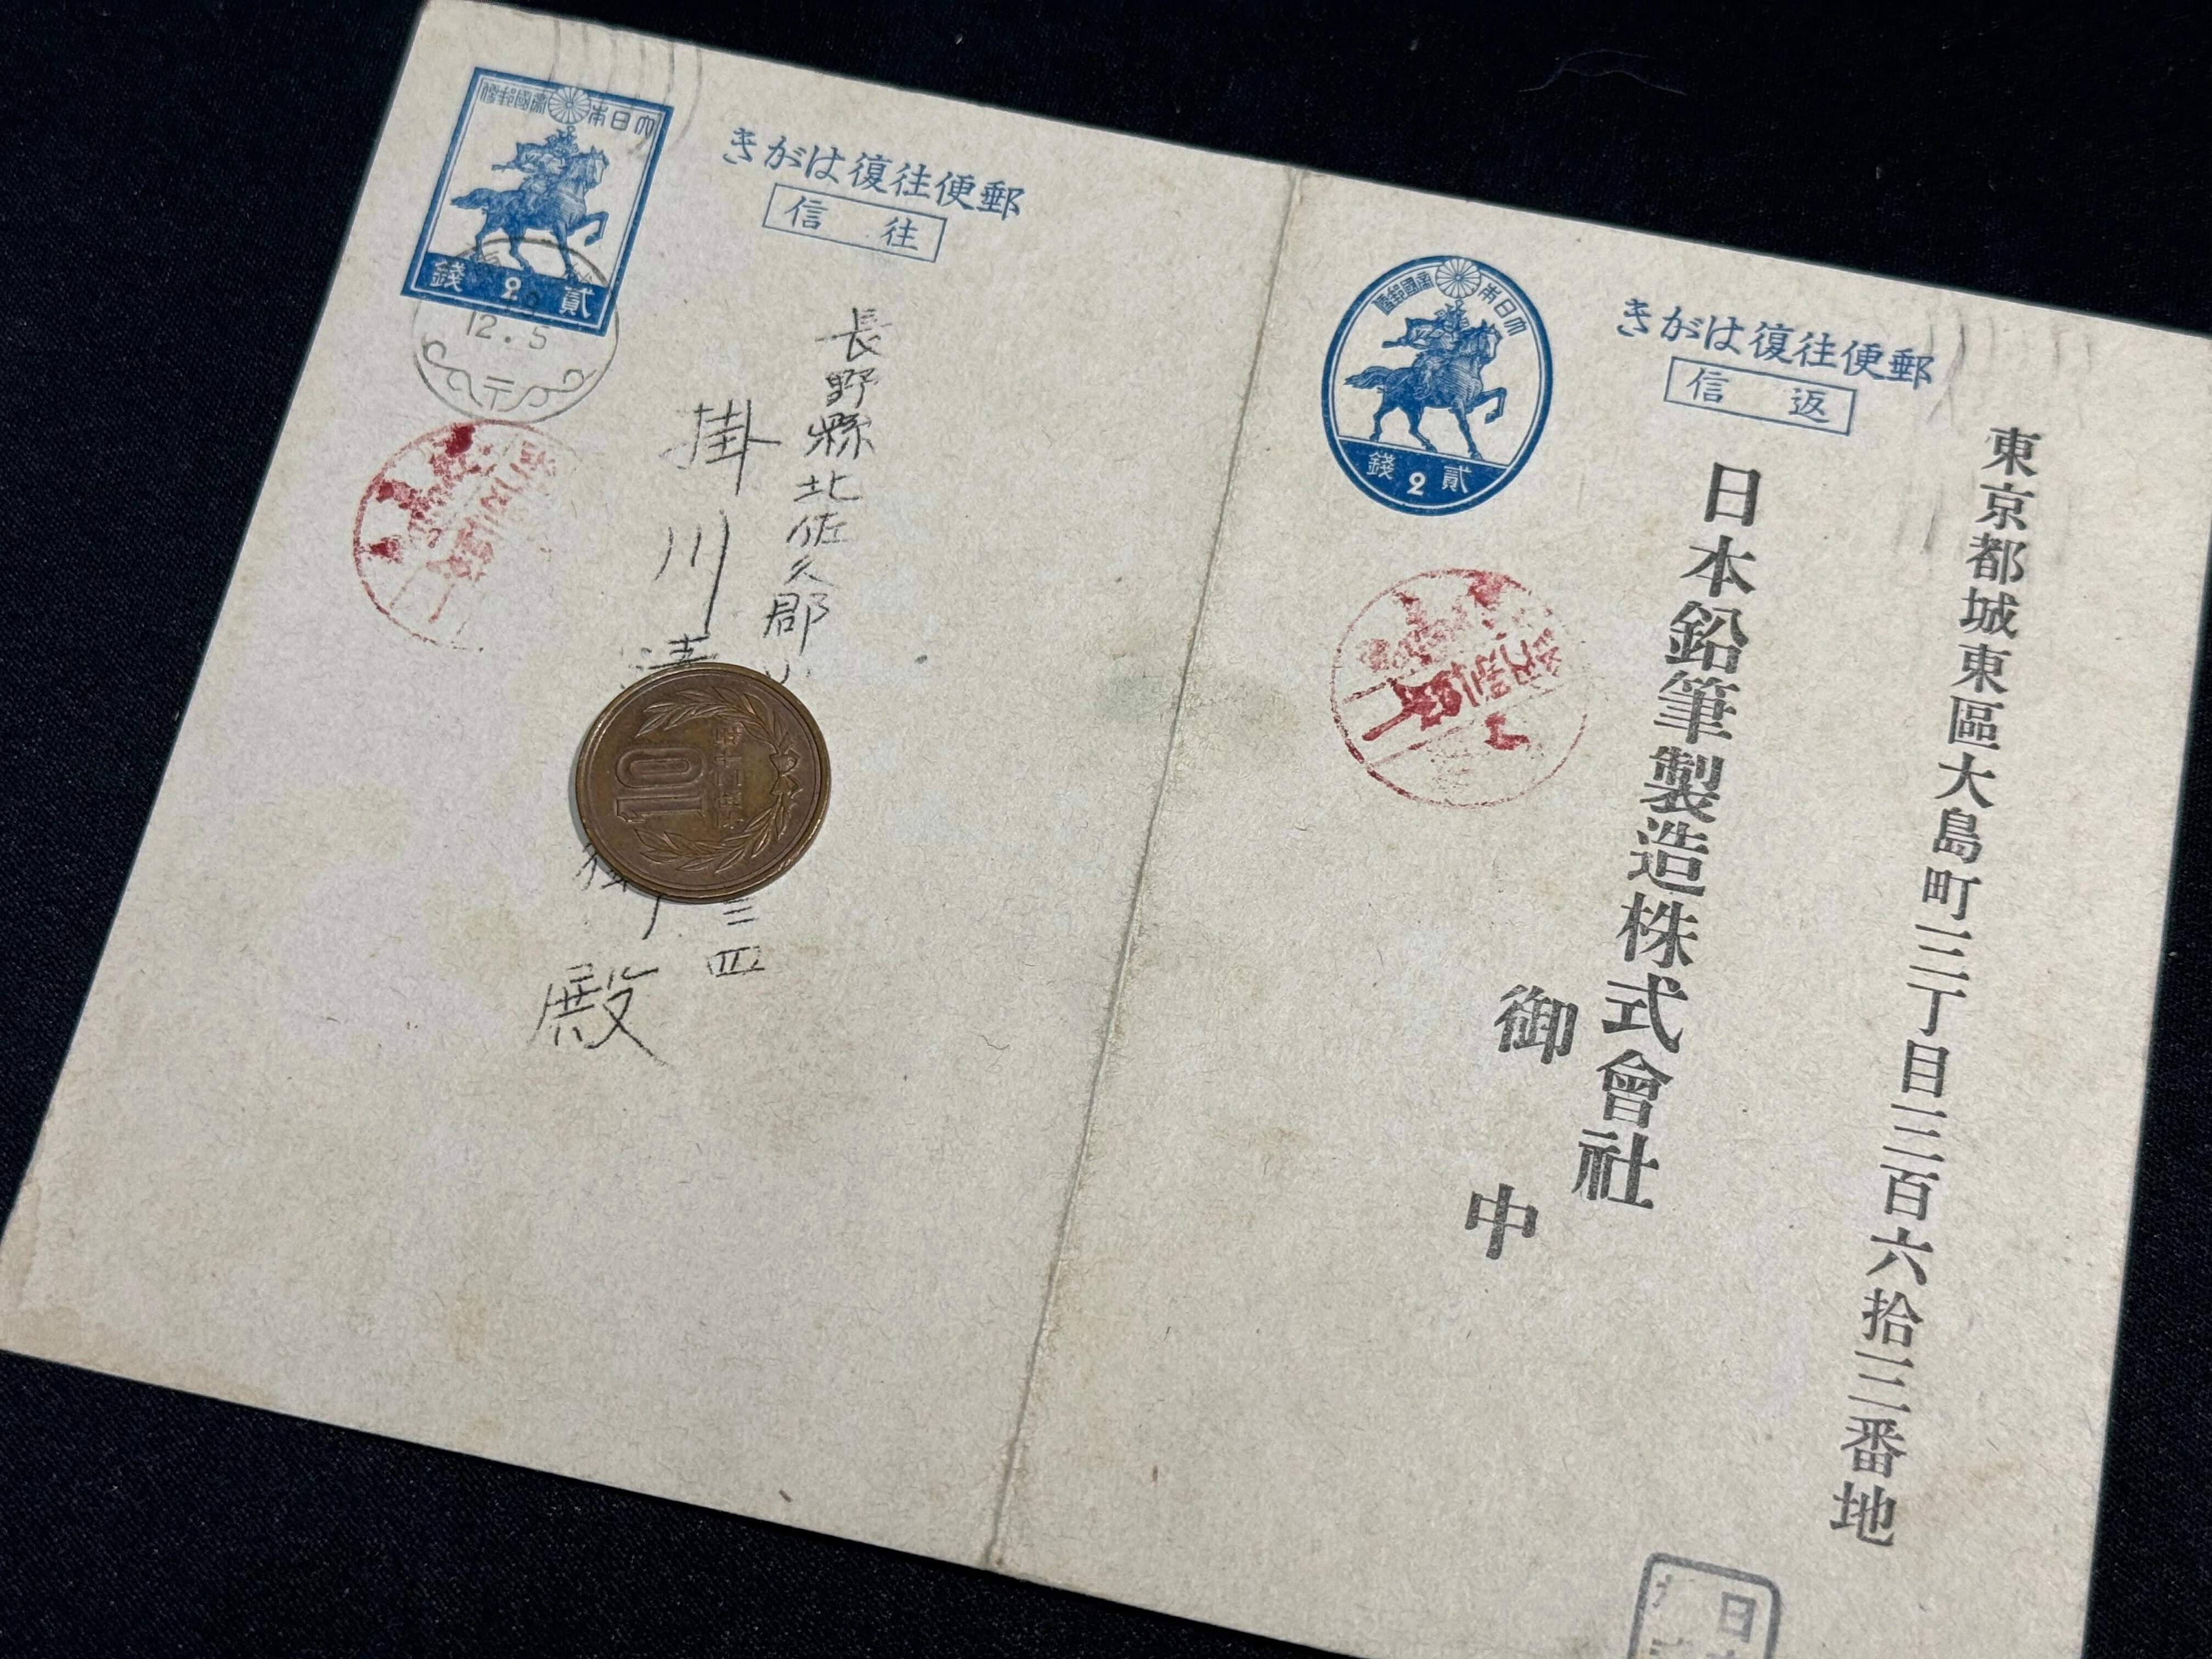 東京都城東區大島町三丁目三百六拾三番地
日本鉛筆製造株式會社
御中
きがは復往便郵
信返
大日本帝國郵便
貳2錢
きがは復往便郵
信往
大日本帝國郵便
貳2錢
12.5
〒
長野縣北佐久郡
三四
掛川
殿
10
日